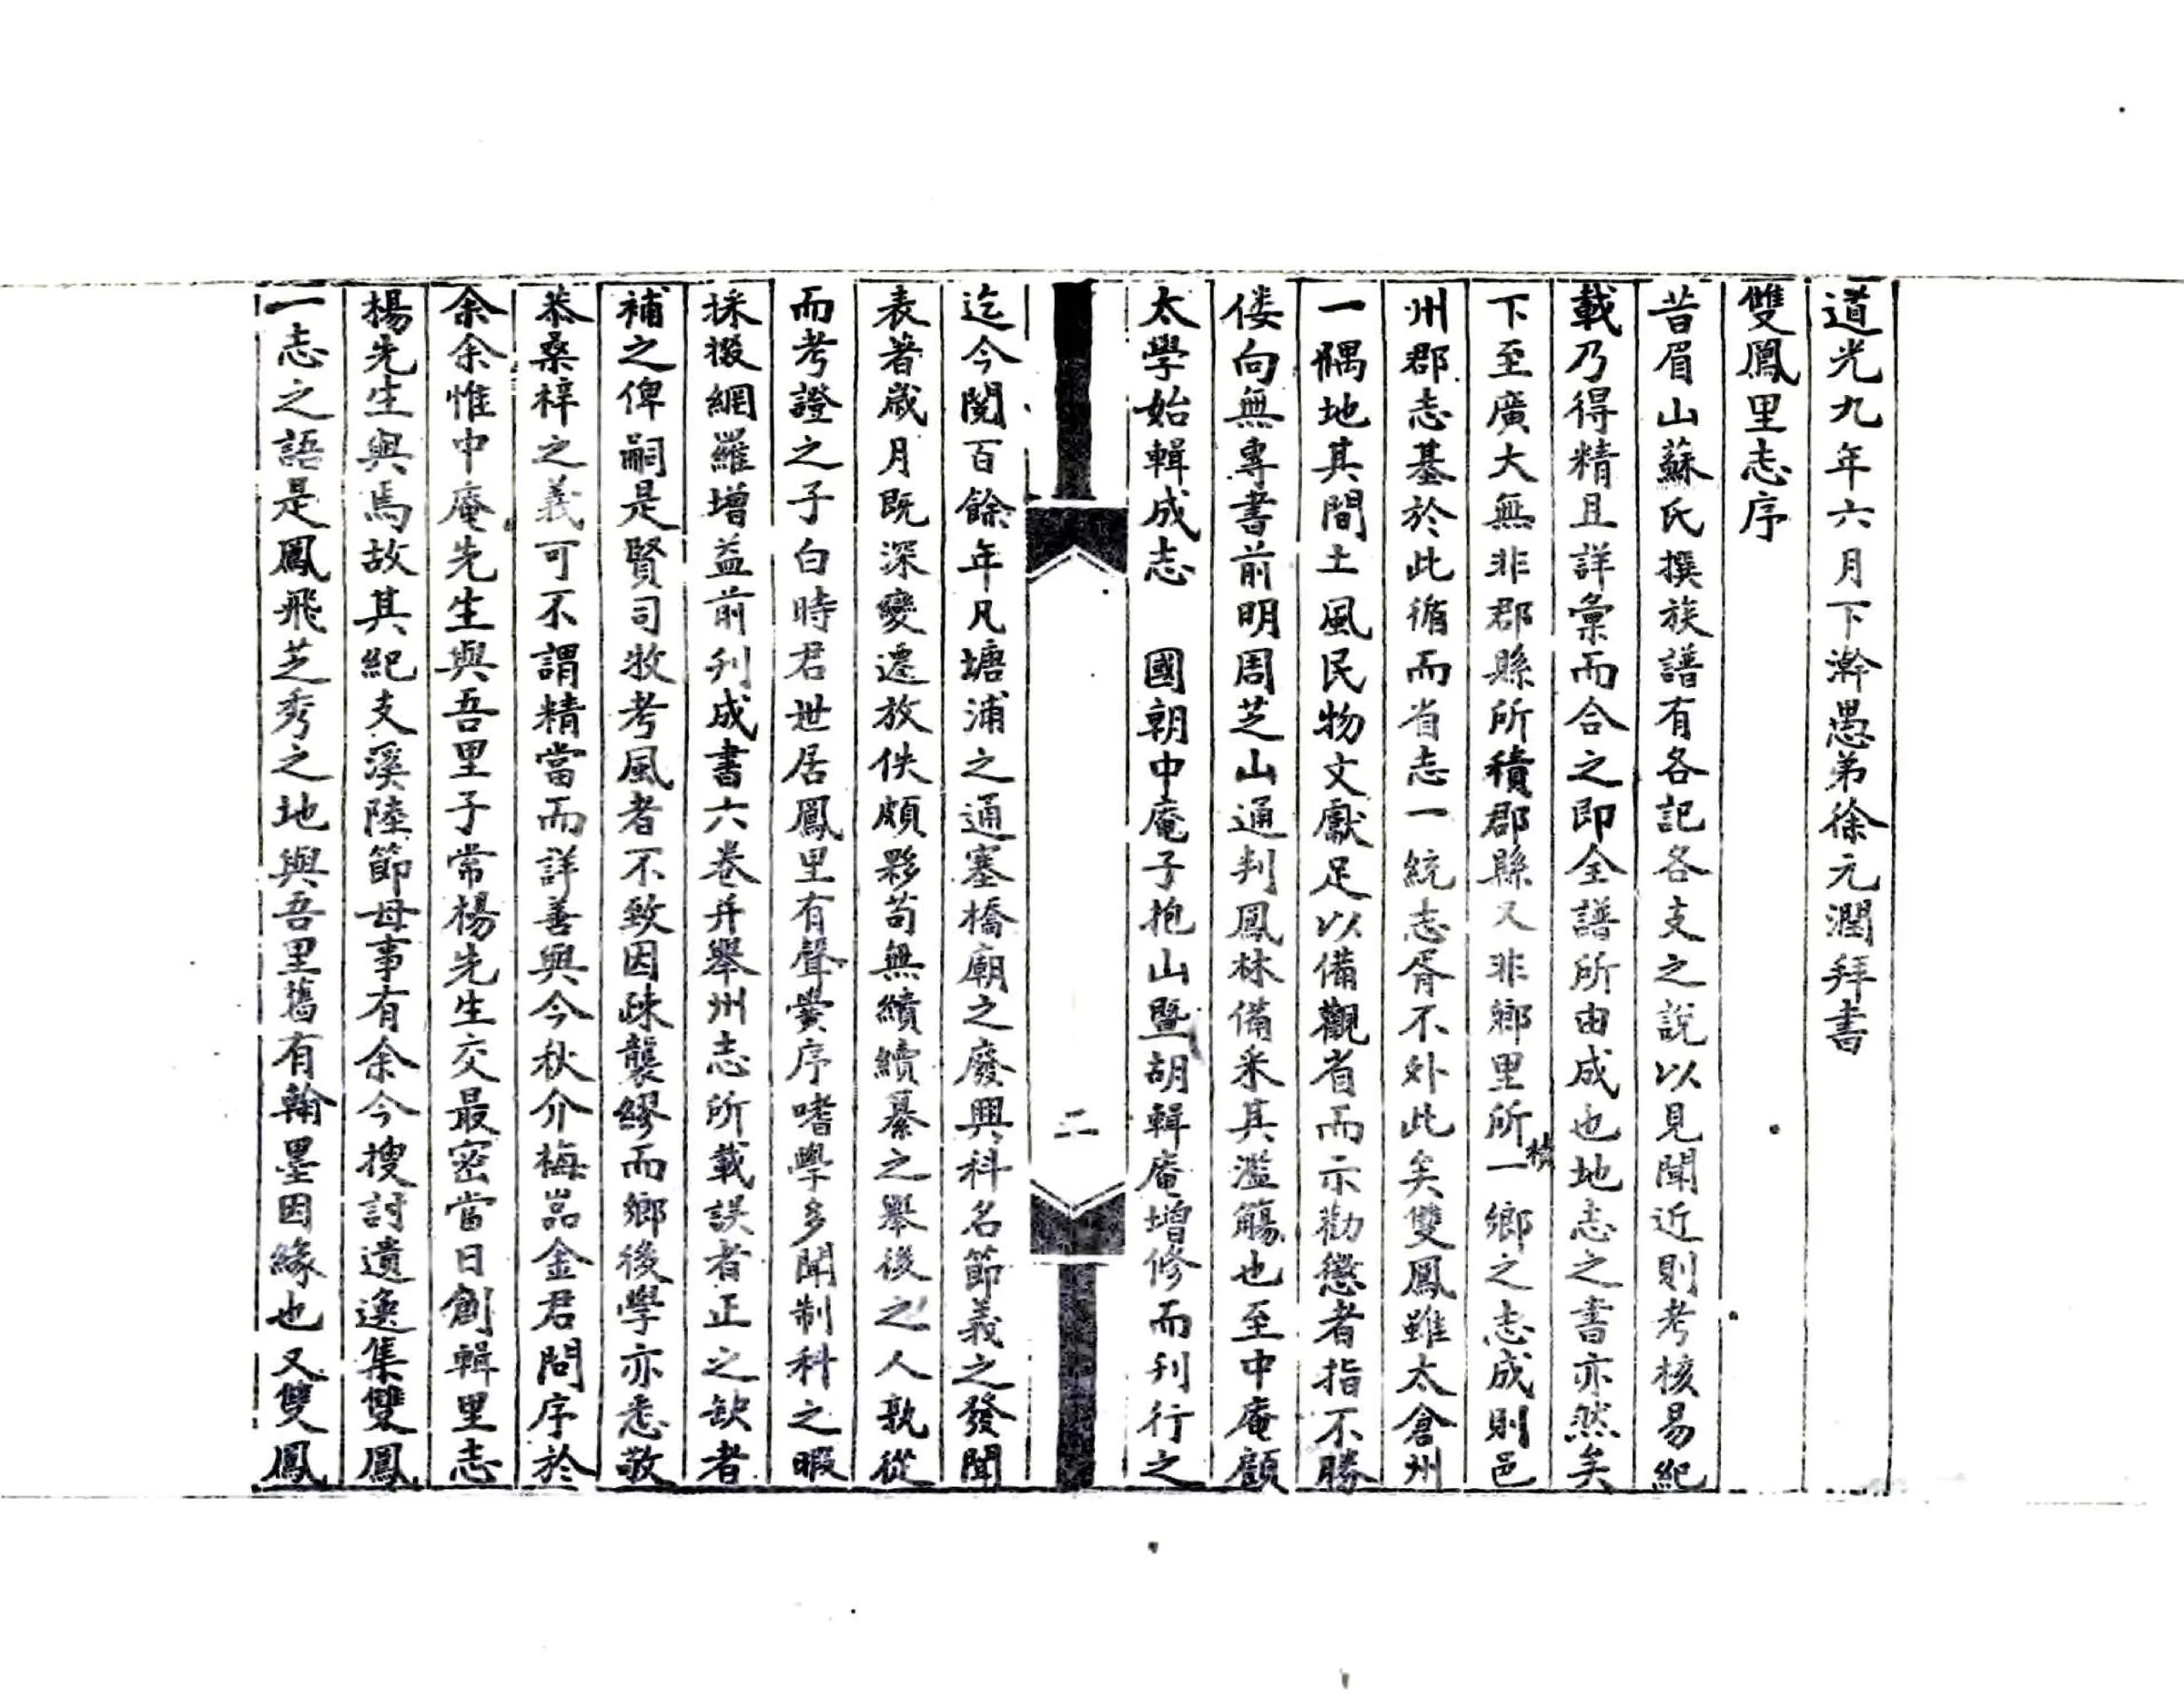 道光九年六月下澣愚弟徐元潤拜書
雙鳳里志序
昔眉山蘇氏撰族譜有各記各支之說以見聞近則考核易紀
載乃得精且詳彙而合之即全譜所由成也地志之書亦然矣
下至廣大無非郡縣所積郡縣又非鄉里所積一鄉之志成則邑
州郡志基於此循而省志一統志胥不外此矣雙鳳雖太倉州
一隅地其間土風民物文獻足以備觀省而示勸懲者指不勝
倭向無專書前明周芝山通判鳳林備釆其濫觴也至中庵顧
太學始輯成志　國朝中庵子抱山暨胡輯庵增修而刊行之
二
迄今閱百餘年凡塘浦之通塞橋廟之廢興科名節義之發聞
表著歲月既深變遷放佚頗夥苟無續續纂之舉後之人孰從
而考證之子白時君世居鳳里有聲黌序嗜學多聞制科之暇
採掇網羅增益前刋成書六卷并舉州志所載誤者正之缺者
補之俾嗣是賢司牧考風者不致因踈襲繆而鄉後學亦悉敬
恭桑梓之義可不謂精當而詳善與今秋介梅嵓金君問序於
余余惟中庵先生與吾里子常楊先生交最密當日創輯里志
楊先生與焉故其紀支溪陸節母事有余今搜討遺逸集雙鳳
一志之語是鳳飛芝秀之地與吾里舊有翰墨因緣也又雙鳳